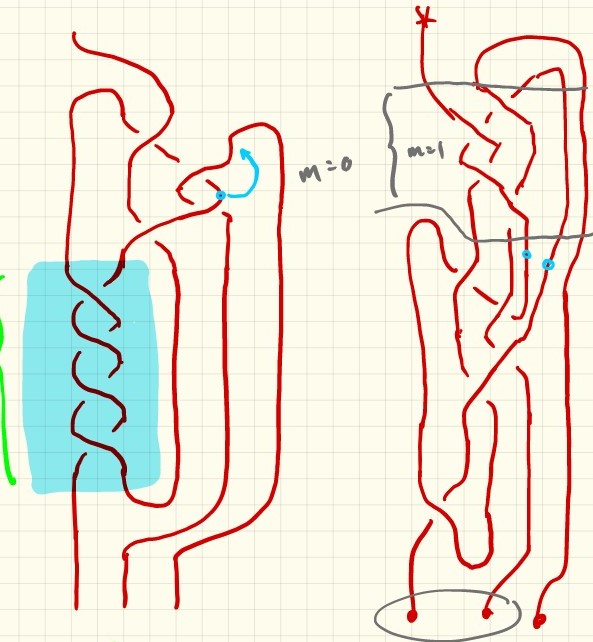 m=0
m=1